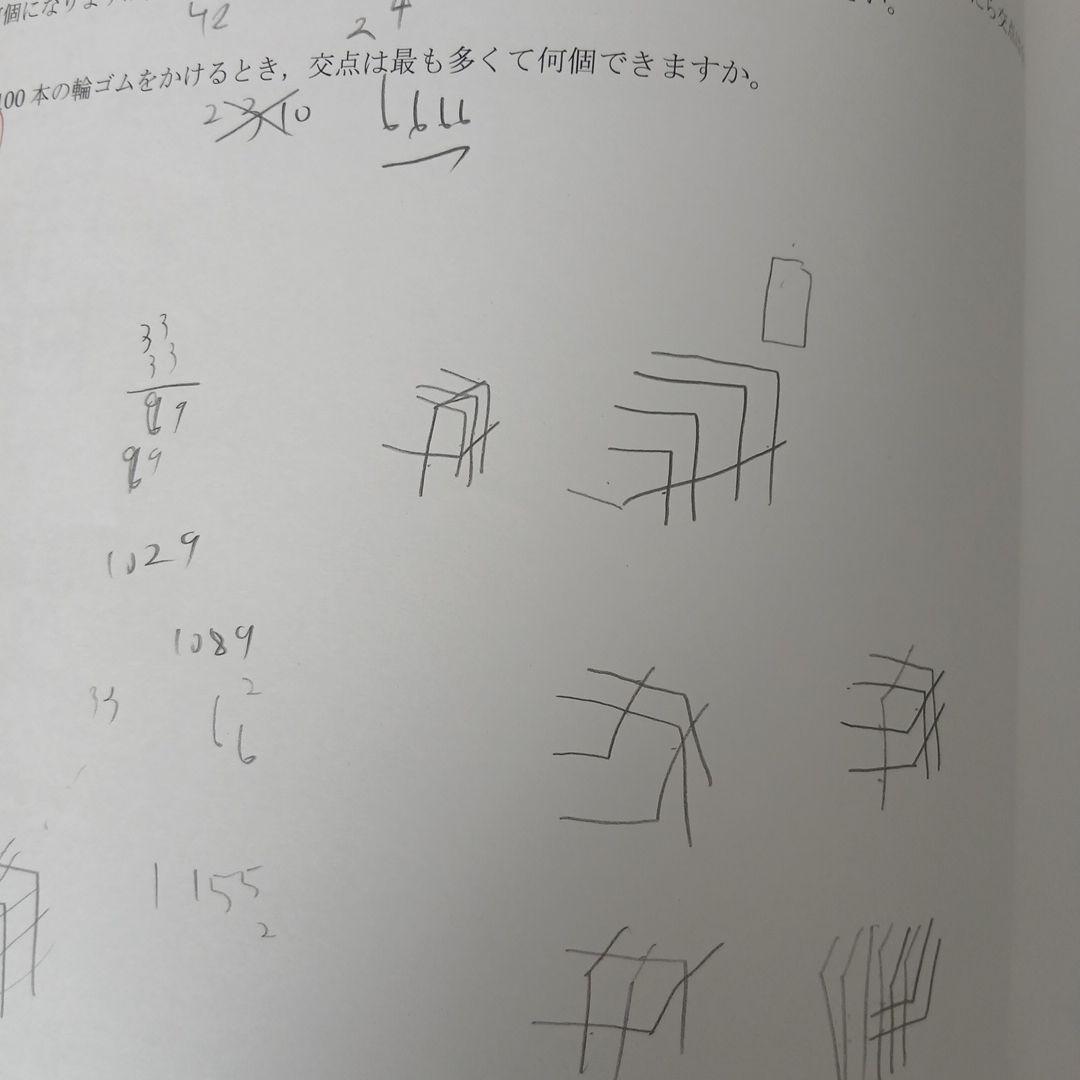 個になりま
42
2 4
100 本の輪ゴムをかけるとき，交点は最も多くて何個できますか。
2 3 10
6616
33
33
99
99
1029
1089
2
16
33
1155
2